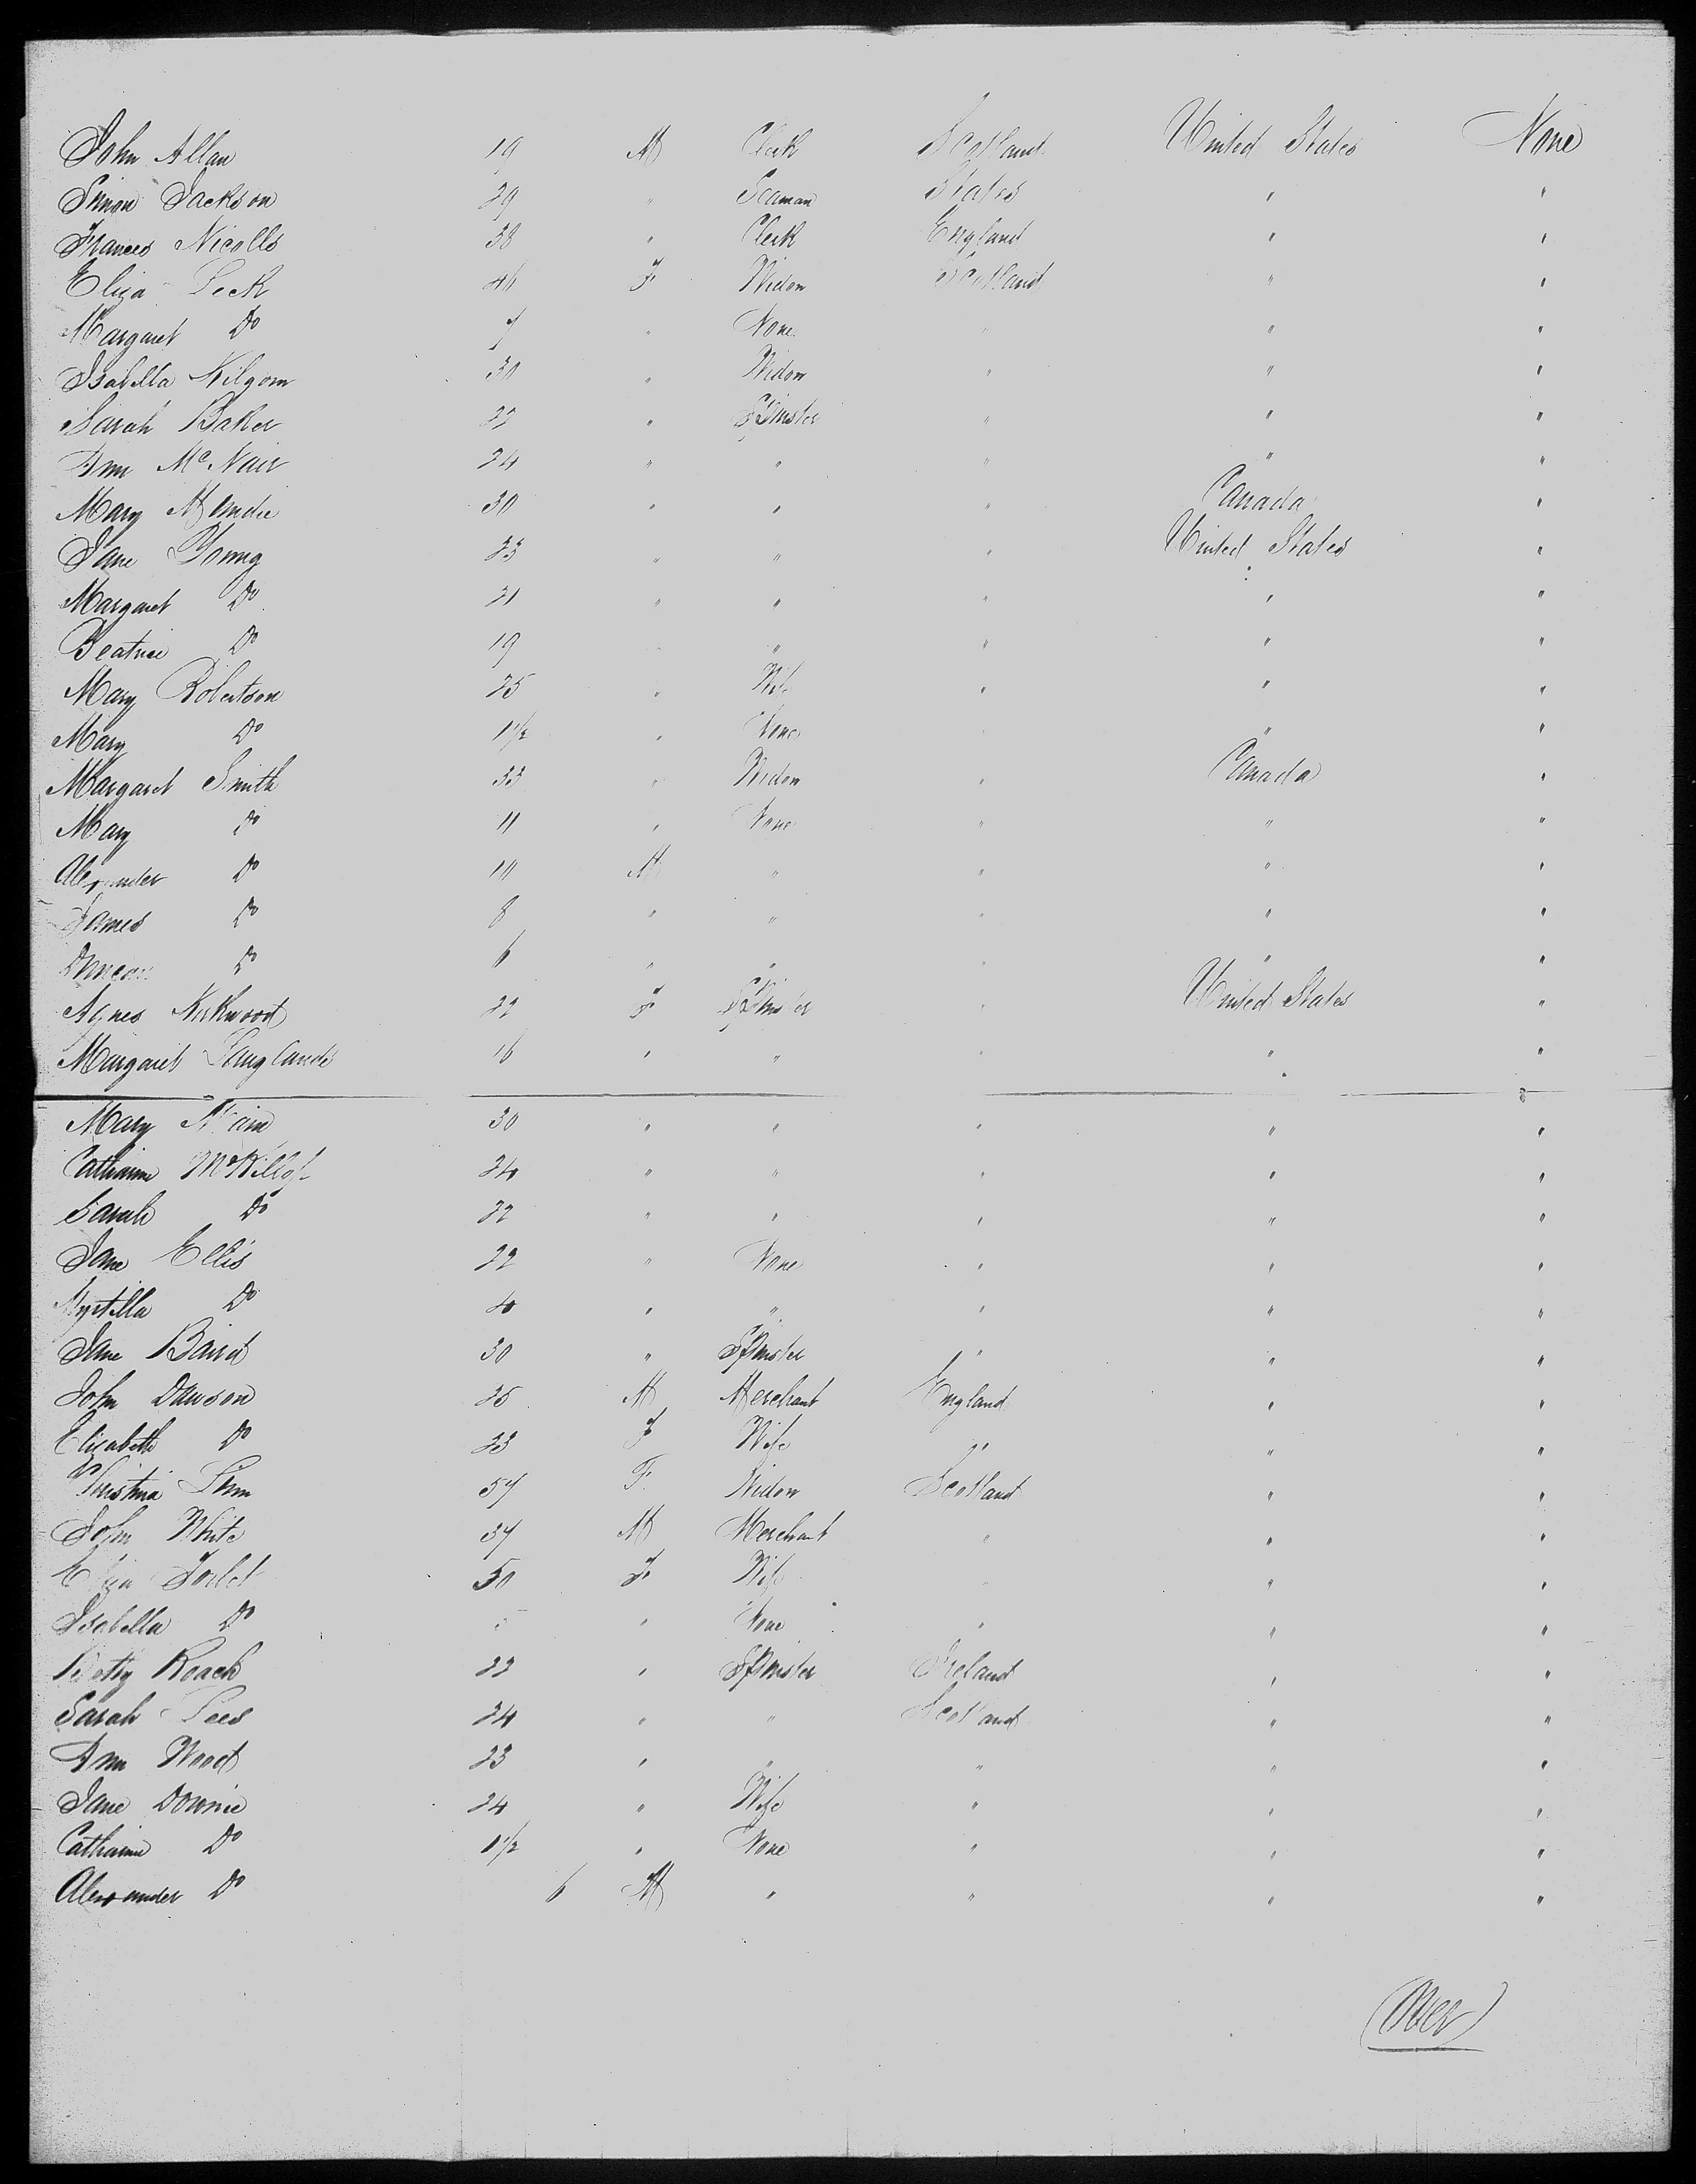 John Allan 19 M Clerk Scotland United States None
Simon Jackson 29 " Seaman States " "
Frances Nicolls 38 " Clerk England " "
Eliza Leck 46 F Widow Scotland " "
Margaret Do 7 " None " " "
Isabella Kilgom 30 " Widow " " "
Sarah Baker 22 " Spinster " " "
Ann McNair 24 " " " " "
Mary 30 " " " Canada "
Jane Young 23 " " " United States "
Margaret Do 21 " " " " "
Beatrice Do 19 " " " "
Mary Robertson 25 " Wife " " "
Mary Do 1½ " None " " "
Margaret Smith 33 " Widow " Canada "
Mary Do 11 " None " " "
Alexander Do 10 M " " " "
James Do 8 " " " " "
Duncan Do 6 " " " " "
Agnes Kirkwood 22 F Spinster " United States "
Margaret Langlands 16 " " " " "
Mary 30 " " " " "
Catharine McKillop 24 " " " " "
Sarah Do 22 " " " " "
Jane Ellis 22 " None " " "
Myrtilla Do 4 " " " " "
Jane Baird 30 " Spinster " " "
John Dawson 25 M Merchant England " "
Elizabeth Do 23 F Wife " " "
Christina 57 F Widow Scotland " "
John White 37 M Merchant " " "
Eliza 50 F Wife " " "
Isabella Do " None " " "
Betty Roach 22 " Spinster Ireland " "
Sarah Lees 24 " " Scotland " "
Ann Wood 23 " " " " "
Jane Downie 24 " Wife " " "
Catharine Do 1½ " None " " "
Alexander Do 6 M " " " "
(Over)